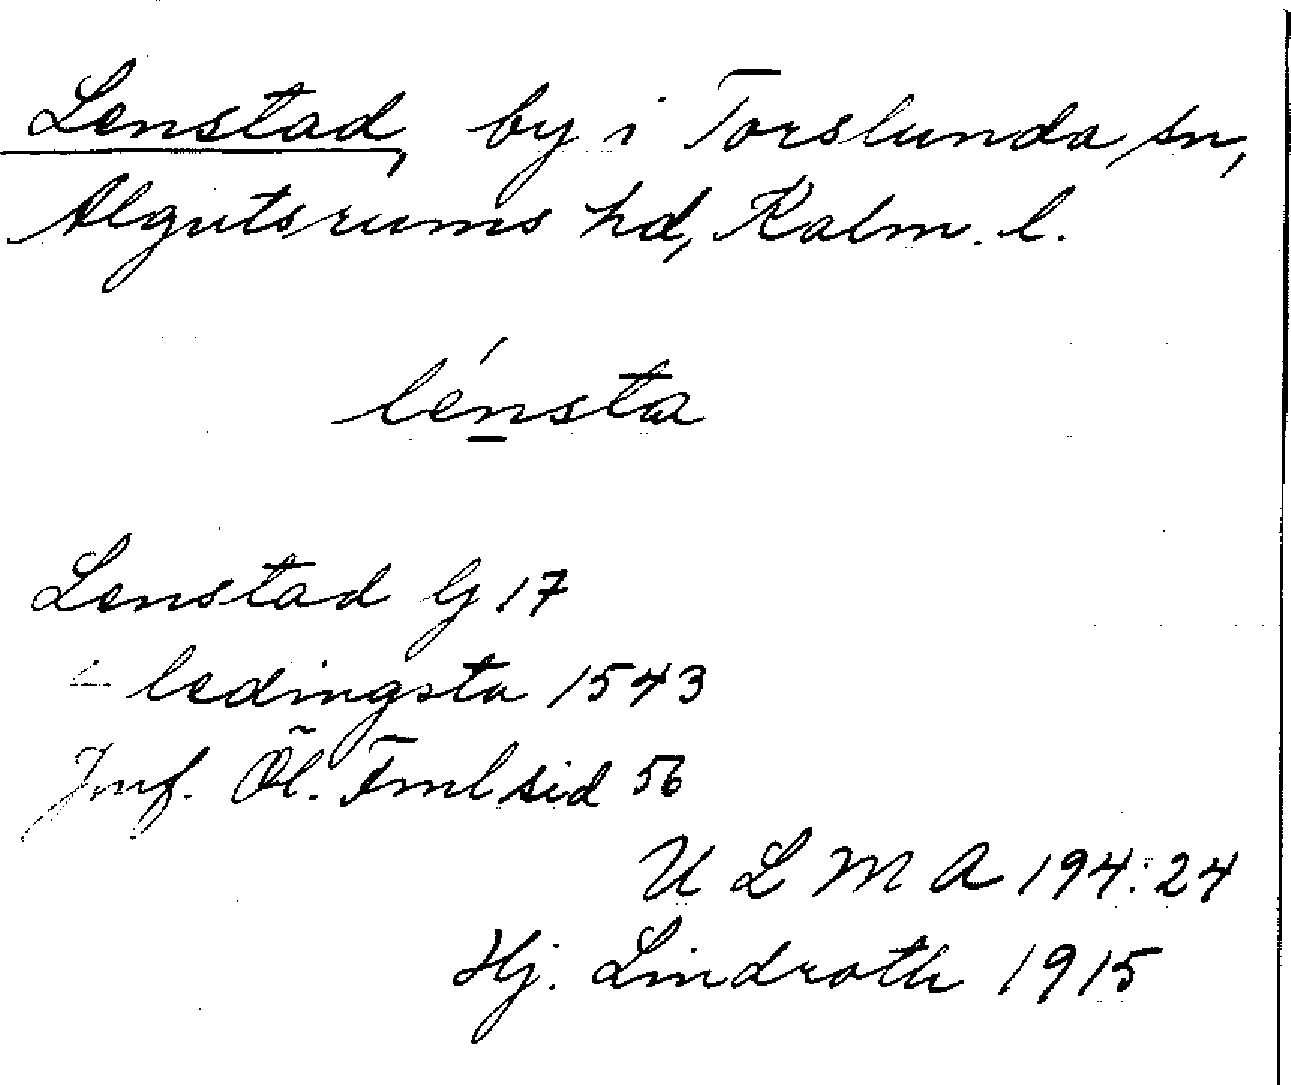 Lenstad, by i Torslunda sn,
Algutsrums hd, Kalm. l.
lénsta
Lenstad G 17
ledingsta 1543
Jmf. Öl. Fml sid 56
U L M A 194:24
Hj. Lindroth 1915